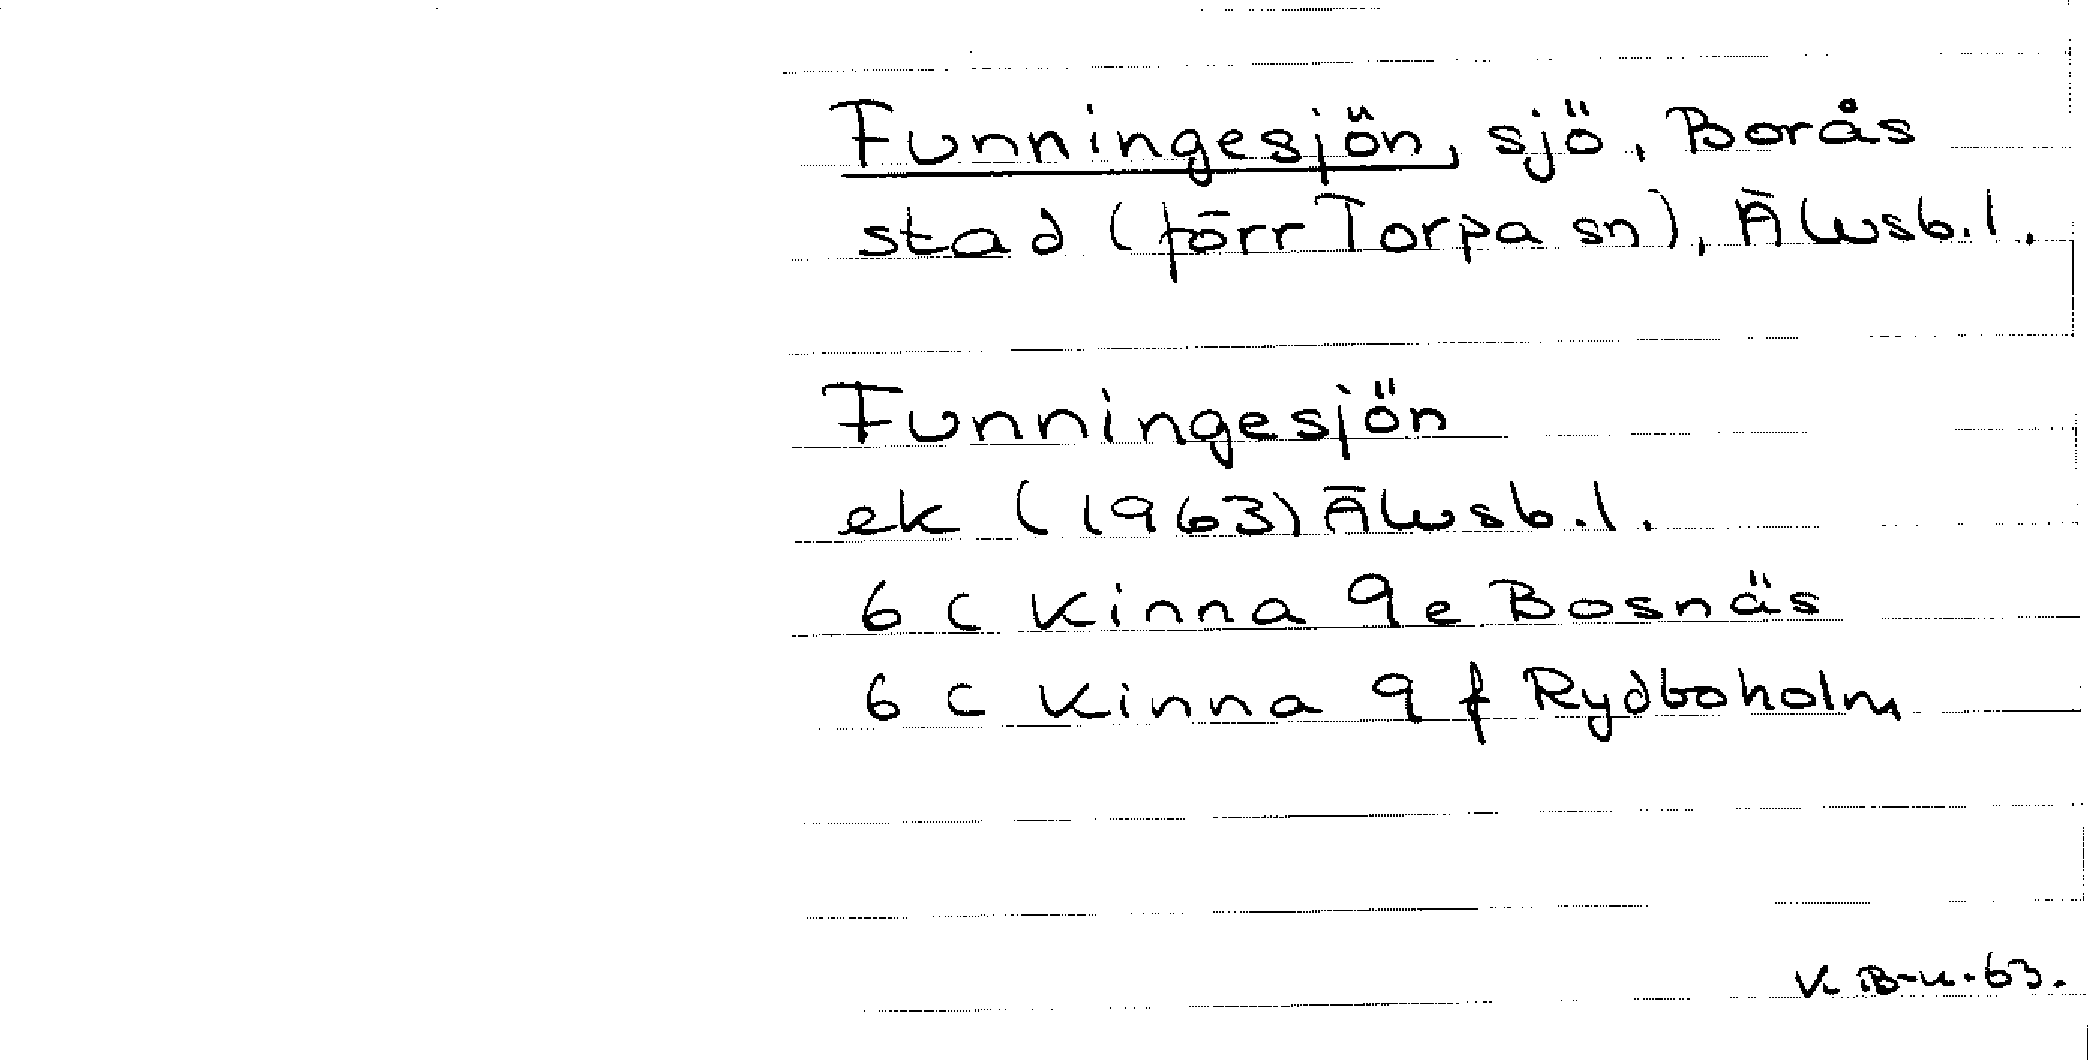 Funningesjön, sjö, Borås
stad (förr Torpa sn), Älvsb.l.
Funningesjön
ek (1963) Älvsb.l.
6 C Kinna 9e Bosnäs
6 C Kinna 9 f Rydboholm
K B-u.63.